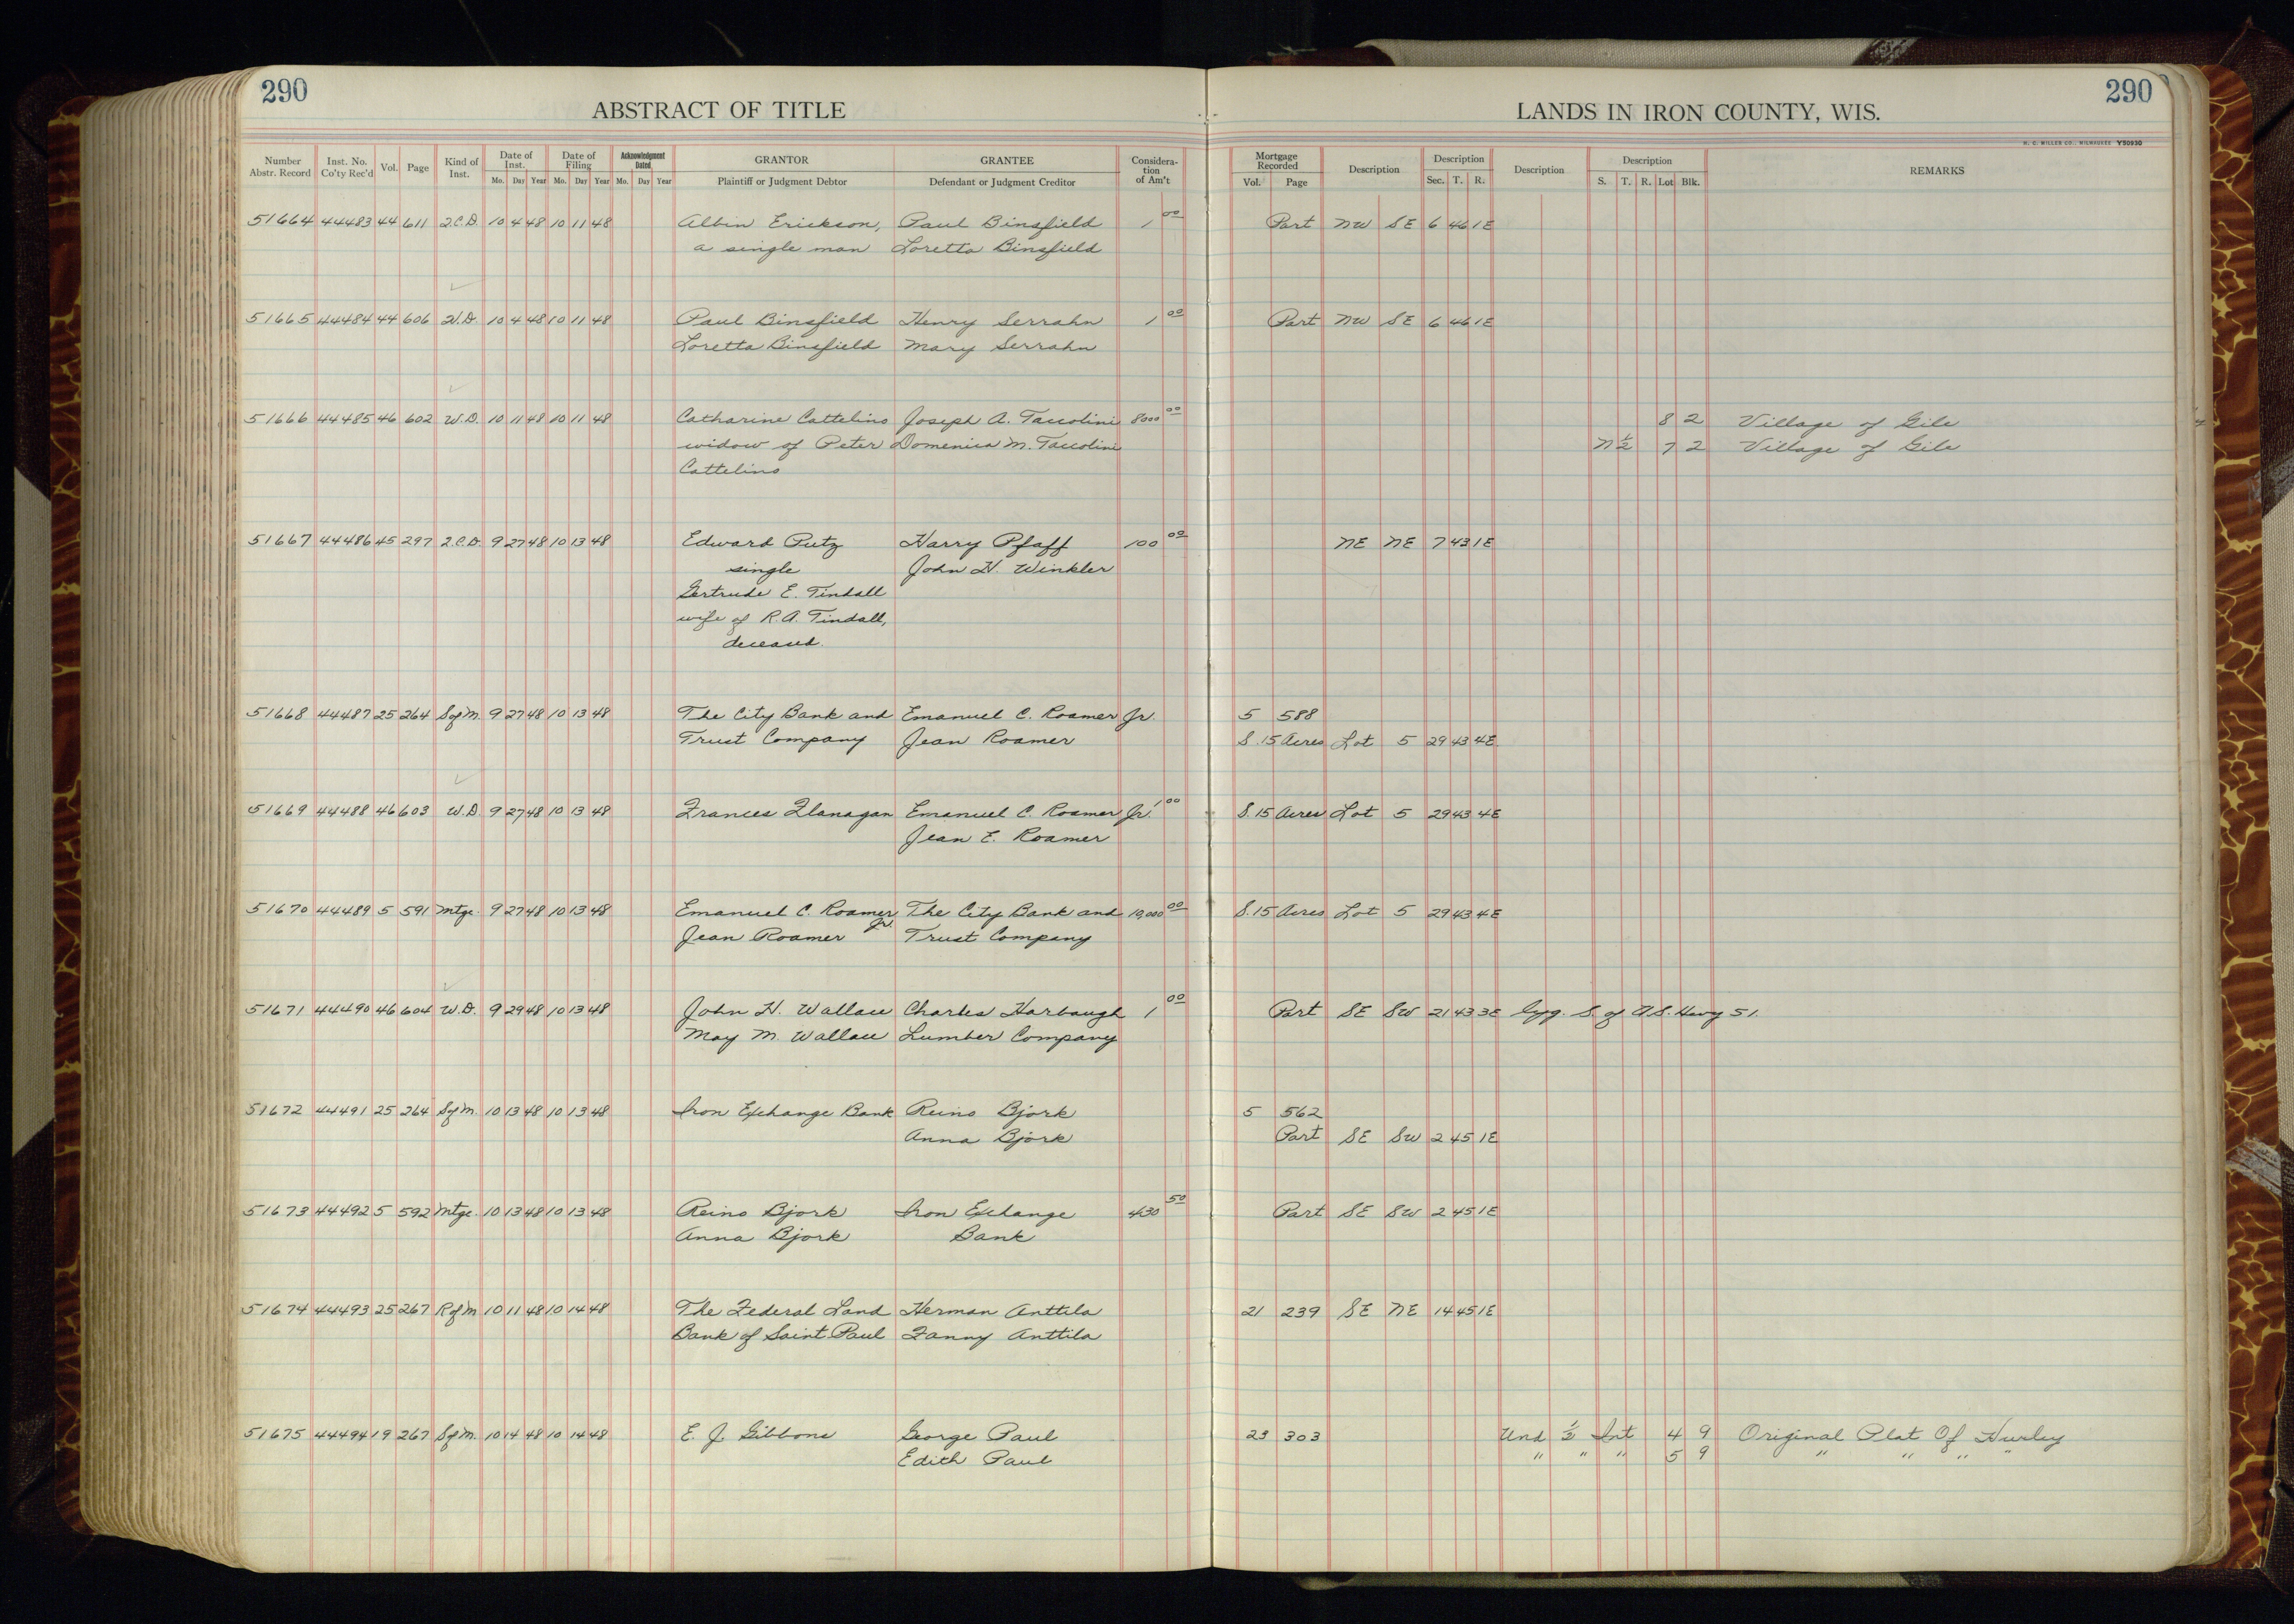 290
290
ABSTRACT OF TITLE
LANDS IN IRON COUNTY, WIS.
H. C. MILLER CO., MILWAUKEE Y50930
Number Abstr. Record Inst. No. Co'ty Rec'd Vol. Page Kind of Inst. Date of Inst. Mo. Day Year Date of Filing Mo. Day Year Acknowledgment Dated Mo. Day Year GRANTOR Plaintiff or Judgment Debtor GRANTEE Defendant or Judgment Creditor Considera-tion of Am't Mortgage Recorded Vol. Page Description Description Sec. T. R. Description Description S. T. R. Lot Blk. REMARKS
51664 44483 44 611 2.C.D. 10 4 48 10 11 48 Albin Erickson, Paul Binsfield 1 00 Part NW SE 6 46 1E
a single man Loretta Binsfield
51665 44484 44 606 W.D. 10 4 48 10 11 48 Paul Binsfield Henry Serrahn 1 00 Part NW SE 6 46 1E
Loretta Binsfield Mary Serrahn
51666 44485 46 602 W.D. 10 11 48 10 11 48 Catharine Cattelino Joseph A. Taccolini 8000 00 8 2 Village of Gile
widow of Peter Domenica M. Taccolini N 1/2 7 2 Village of Gile
Cattelino
51667 44486 45 297 2.C.D. 9 27 48 10 13 48 Edward Putz Harry Pfaff 100 00 NE NE 7 43 1E
single John H. Winkler
Gertrude E. Tindall
wife of R.A. Tindall,
deceased.
51668 44487 25 264 SofM. 9 27 48 10 13 48 The City Bank and Emanuel C. Roamer Jr. 5 588
Trust Company Jean Roamer S. 15 Acres Lot 5 29 43 4E
51669 44488 46 603 W.D. 9 27 48 10 13 48 Frances Flanagan Emanuel C. Roamer Jr. 1 00 S. 15 Acres Lot 5 29 43 4E
Jean E. Roamer
51670 44489 5 591 Mtge. 9 27 48 10 13 48 Emanuel C. Roamer Jr. The City Bank and 10,000 00 S. 15 Acres Lot 5 29 43 4E
Jean Roamer Trust Company
51671 44490 46 604 W.D. 9 29 48 10 13 48 John H. Wallace Charles Harbaugh 1 00 Part SE SW 21 43 3E Lyg. S. of U.S. Hwy 51.
May M. Wallace Lumber Company
51672 44491 25 264 SofM. 10 13 48 10 13 48 Iron Exchange Bank Reino Bjork 5 562
Anna Bjork Part SE SW 2 45 1E
51673 44492 5 592 Mtge. 10 13 48 10 13 48 Reino Bjork Iron Exchange 430 50 Part SE SW 2 45 1E
Anna Bjork Bank
51674 44493 25 267 RofM 10 11 48 10 14 48 The Federal Land Herman Anttila 21 239 SE NE 14 45 1E
Bank of Saint Paul Fanny Anttila
51675 44494 19 267 SofM. 10 14 48 10 14 48 E. J. Gibbons George Paul 23 303 Und 1/2 Int 4 9 Original Plat Of Hurley
Edith Paul " " " 5 9 " " " "